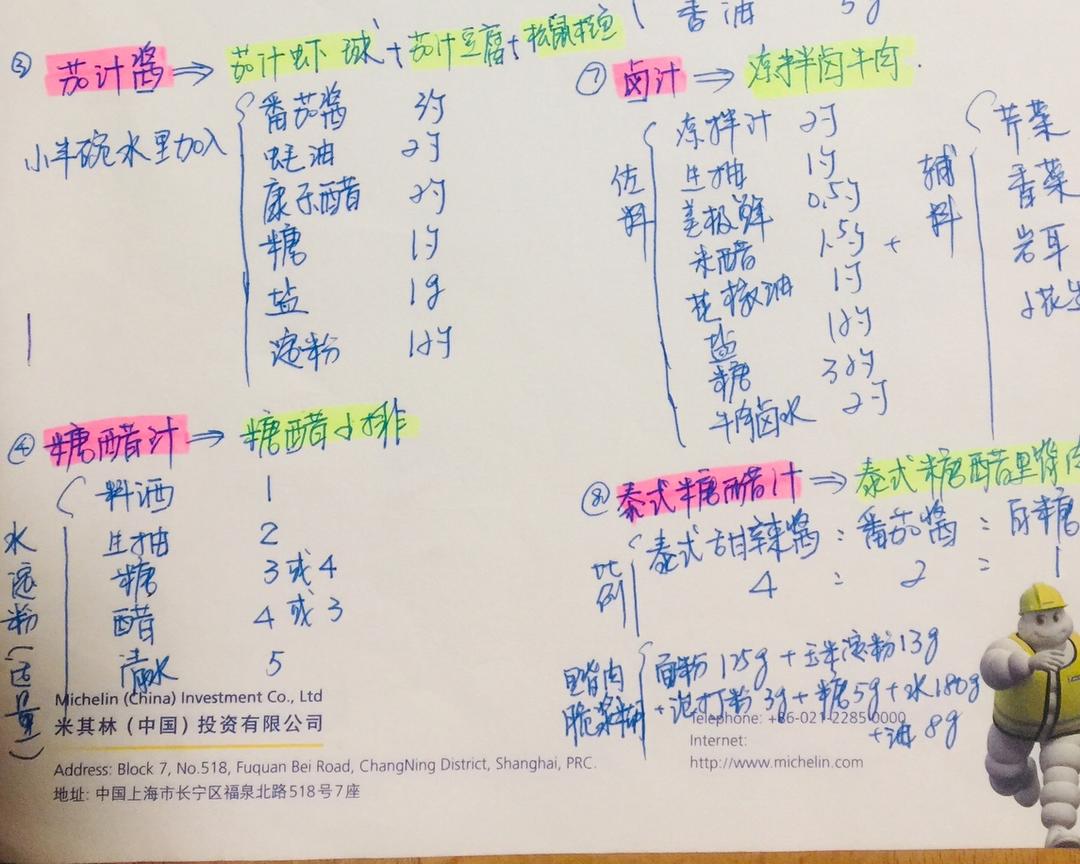 香油 5g
③ 茄汁酱 → 茄汁虾球 + 茄汁豆腐 + 松鼠桂鱼
小半碗水里加入
番茄酱 3勺
蚝油 2勺
康乐醋 2勺
糖 1勺
盐 1g
淀粉 1小勺
④ 糖醋汁 → 糖醋小排
料酒 1
生抽 2
糖 3或4
醋 4或3
清水 5
水淀粉(适量)
⑦ 卤汁 → 凉拌卤牛肉.
佐料
凉拌汁 2勺
生抽 1勺
美极鲜 0.5勺
米醋 1.5勺
花椒油 1勺
盐 1小勺
糖 3小勺
牛肉卤水 2勺
+ 辅料
芹菜
香菜
岩耳
小花生
⑧ 泰式糖醋汁 → 泰式糖醋里脊肉
比例
泰式甜辣酱 : 番茄酱 : 白糖
4 : 2 : 1
里脊肉脆浆糊
面粉 125g + 玉米淀粉 13g
+ 泡打粉 3g + 糖 5g + 水 180g
+ 油 8g
Michelin (China) Investment Co., Ltd
米其林（中国）投资有限公司
Address: Block 7, No.518, Fuquan Bei Road, ChangNing District, Shanghai, PRC.
地址: 中国上海市长宁区福泉北路518号7座
Telephone: +86-021-2285 0000
Internet:
http://www.michelin.com